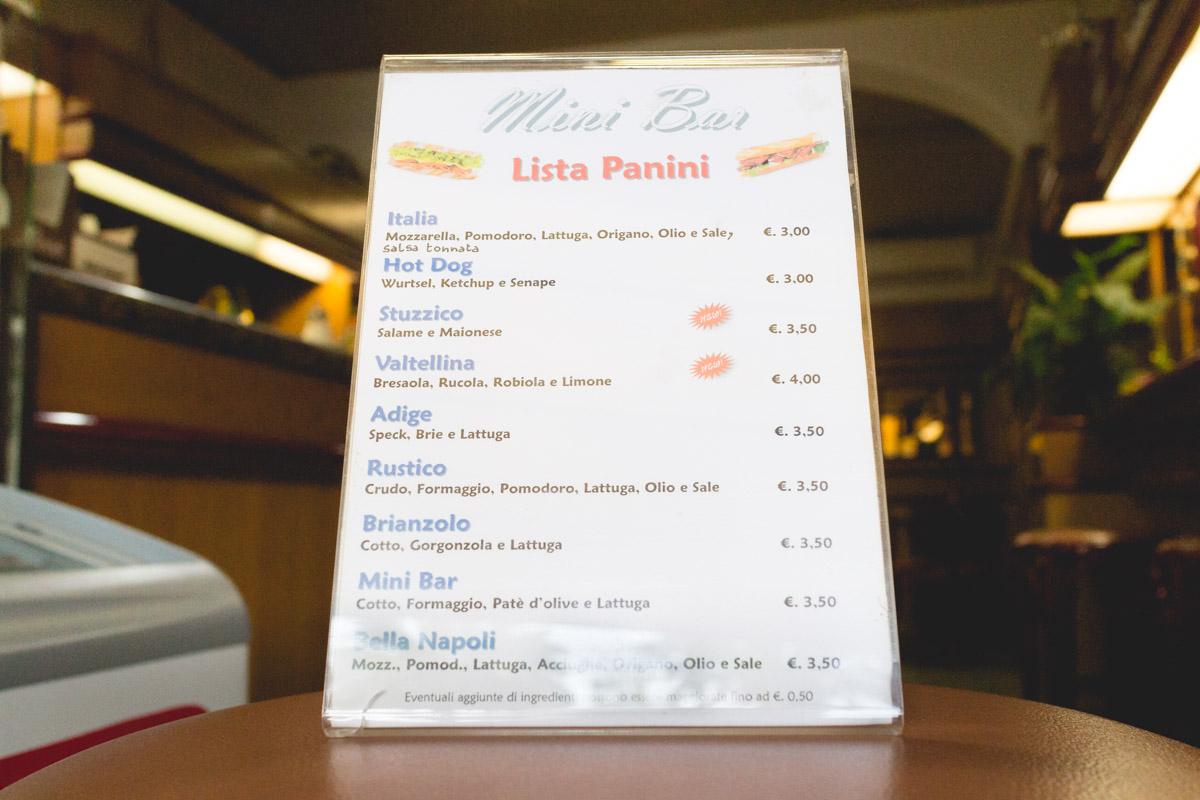 Mini Bar
Lista Panini
Italia
Mozzarella, Pomodoro, Lattuga, Origano, Olio e Sale, €. 3,00
salsa tonnata
Hot Dog
Wurtsel, Ketchup e Senape €. 3,00
Stuzzico NEW!
Salame e Maionese €. 3,50
Valtellina NEW!
Bresaola, Rucola, Robiola e Limone €. 4,00
Adige
Speck, Brie e Lattuga €. 3,50
Rustico
Crudo, Formaggio, Pomodoro, Lattuga, Olio e Sale €. 3,50
Brianzolo
Cotto, Gorgonzola e Lattuga €. 3,50
Mini Bar
Cotto, Formaggio, Patè d'olive e Lattuga €. 3,50
Bella Napoli
Mozz., Pomod., Lattuga, Acciughe, Origano, Olio e Sale €. 3,50
Eventuali aggiunte di ingredienti possono essere maggiorate fino ad €. 0,50